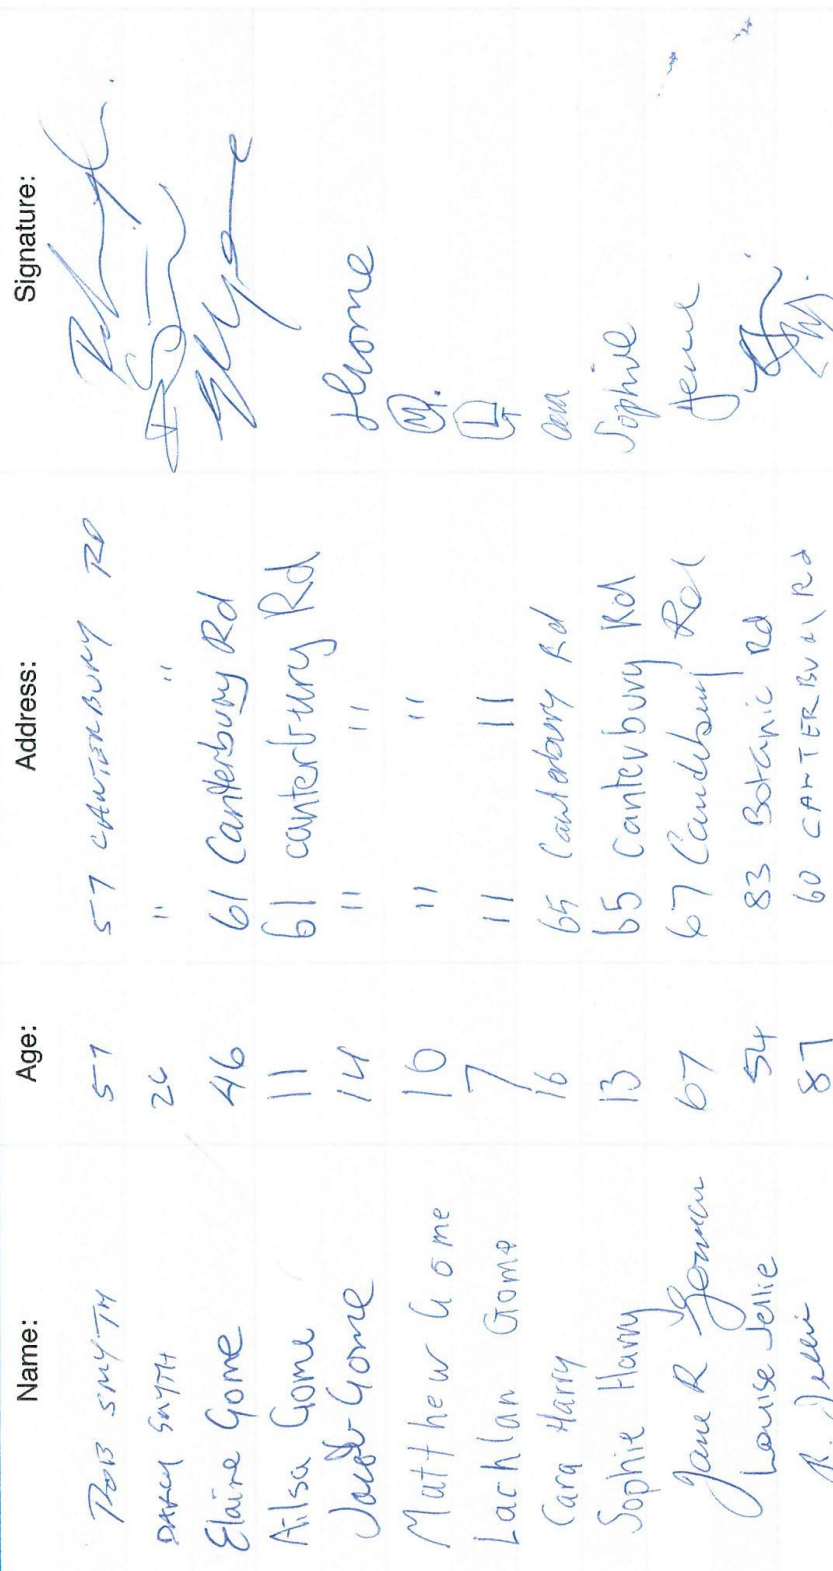 Name: Age: Address: Signature:
ROB SMYTH 57 57 CANTERBURY RD
DARCY SMYTH 26 " "
Elaine Gome 46 61 Canterbury Rd
Ailsa Gome 11 61 canterbury Rd
Jacob Gome 14 " " JGome
Matthew Gome 16 " " M.
Lachlan Gome 7 " " L
Cara Harry 16 65 Canterbury Rd Cara
Sophie Harry 13 65 Canterbury Rd Sophie
Jane R 67 67 Canterbury Rd Jane
Louise Jellie 54 83 Botanic Rd
R. Jellie 87 60 CANTERBURY Rd